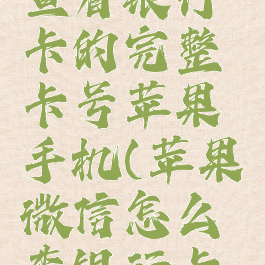 查看银行
卡的完整
卡号苹果
手机(苹果
微信怎么
查银行卡